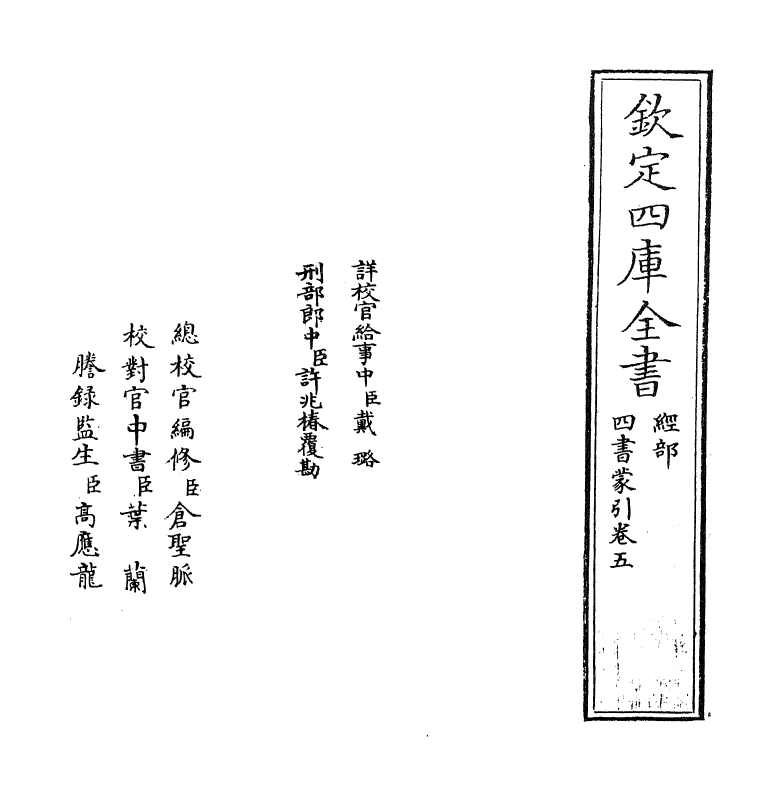 欽定四庫全書
經部
四書蒙引卷五
詳校官給事中臣戴璐
刑部郎中臣許兆椿覆勘
總校官編修臣倉聖脈
校對官中書臣葉蘭
謄録監生臣高應龍